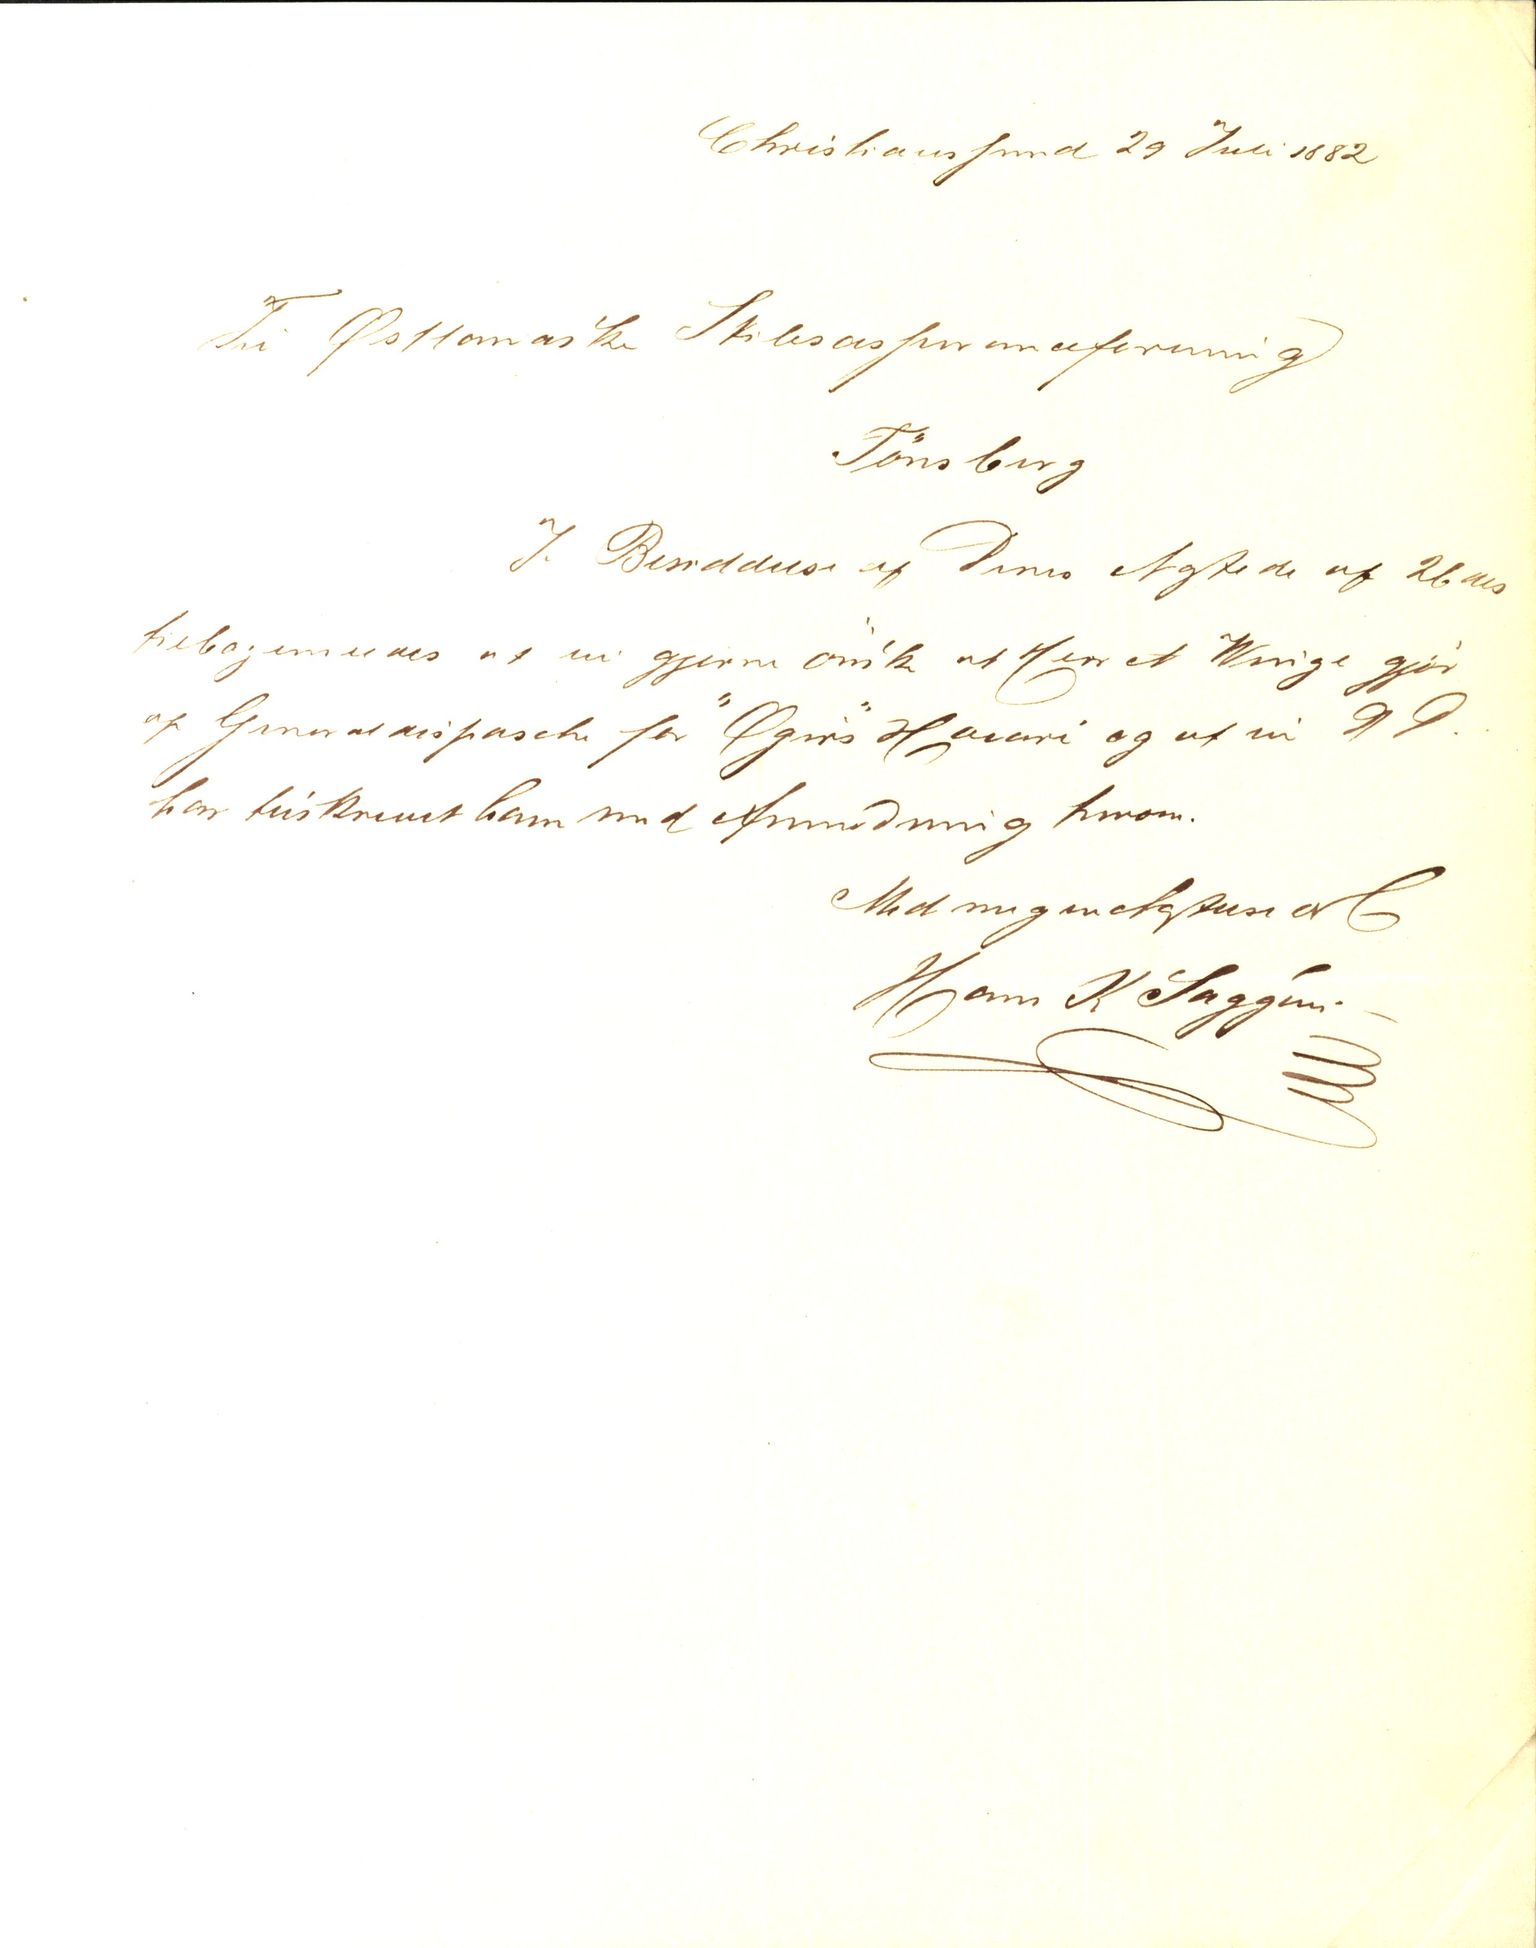 Christianssund 29 Juli 1882
Til Østlandske Skibsassuranceforening
Tönsberg
I Besiddelse af Deres Agtede af 26 ds
tilbagemeldes at vi gjerne önske at Herr A Wrige gjör
op Generaldispasche for "Øgirs" Havari og at vi D D.
har tilskrevet ham med Anmodning herom.
Med megen Agtelse
Hans K